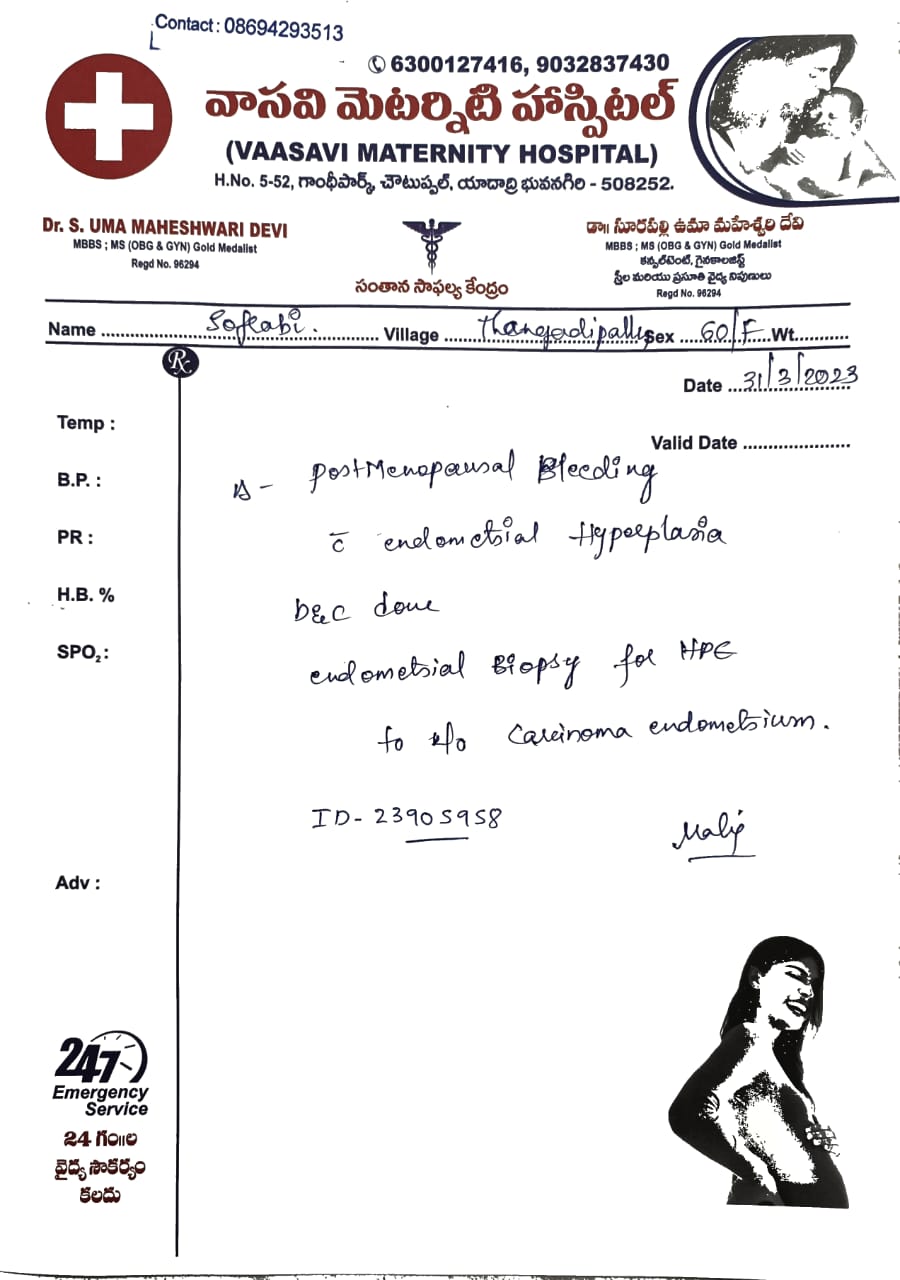 Contact : 08694293513
6300127416, 9032837430
వాసవి మెటర్నిటి హాస్పిటల్
(VAASAVI MATERNITY HOSPITAL)
H.No. 5-52, గాంధీపార్క్, చౌటుప్పల్, యాదాద్రి భువనగిరి - 508252.
Dr. S. UMA MAHESHWARI DEVI
MBBS ; MS (OBG & GYN) Gold Medalist
Regd No. 96294
సంతాన సాఫల్య కేంద్రం
డా॥ సూరపల్లి ఉమా మహేశ్వరి దేవి
MBBS ; MS (OBG & GYN) Gold Medalist
కన్సల్టెంట్, గైనకాలజిస్ట్
స్త్రీల మరియు ప్రసూతి వైద్య నిపుణులు
Regd No. 96294
Name Sofiabi. Village Thangadipally Sex 60/F Wt.
Rx
Date 31/3/2023
Temp :
Valid Date
B.P. :
Δ - Postmenopausal Bleeding
PR :
c̄ endometrial Hyperplasia
H.B. %
D&C done
SPO₂ :
endometrial Biopsy for HPE
to r/o Carcinoma endometrium.
ID - 23905958
Adv :
247
Emergency
Service
24 గం॥ల
వైద్య సౌకర్యం
కలదు